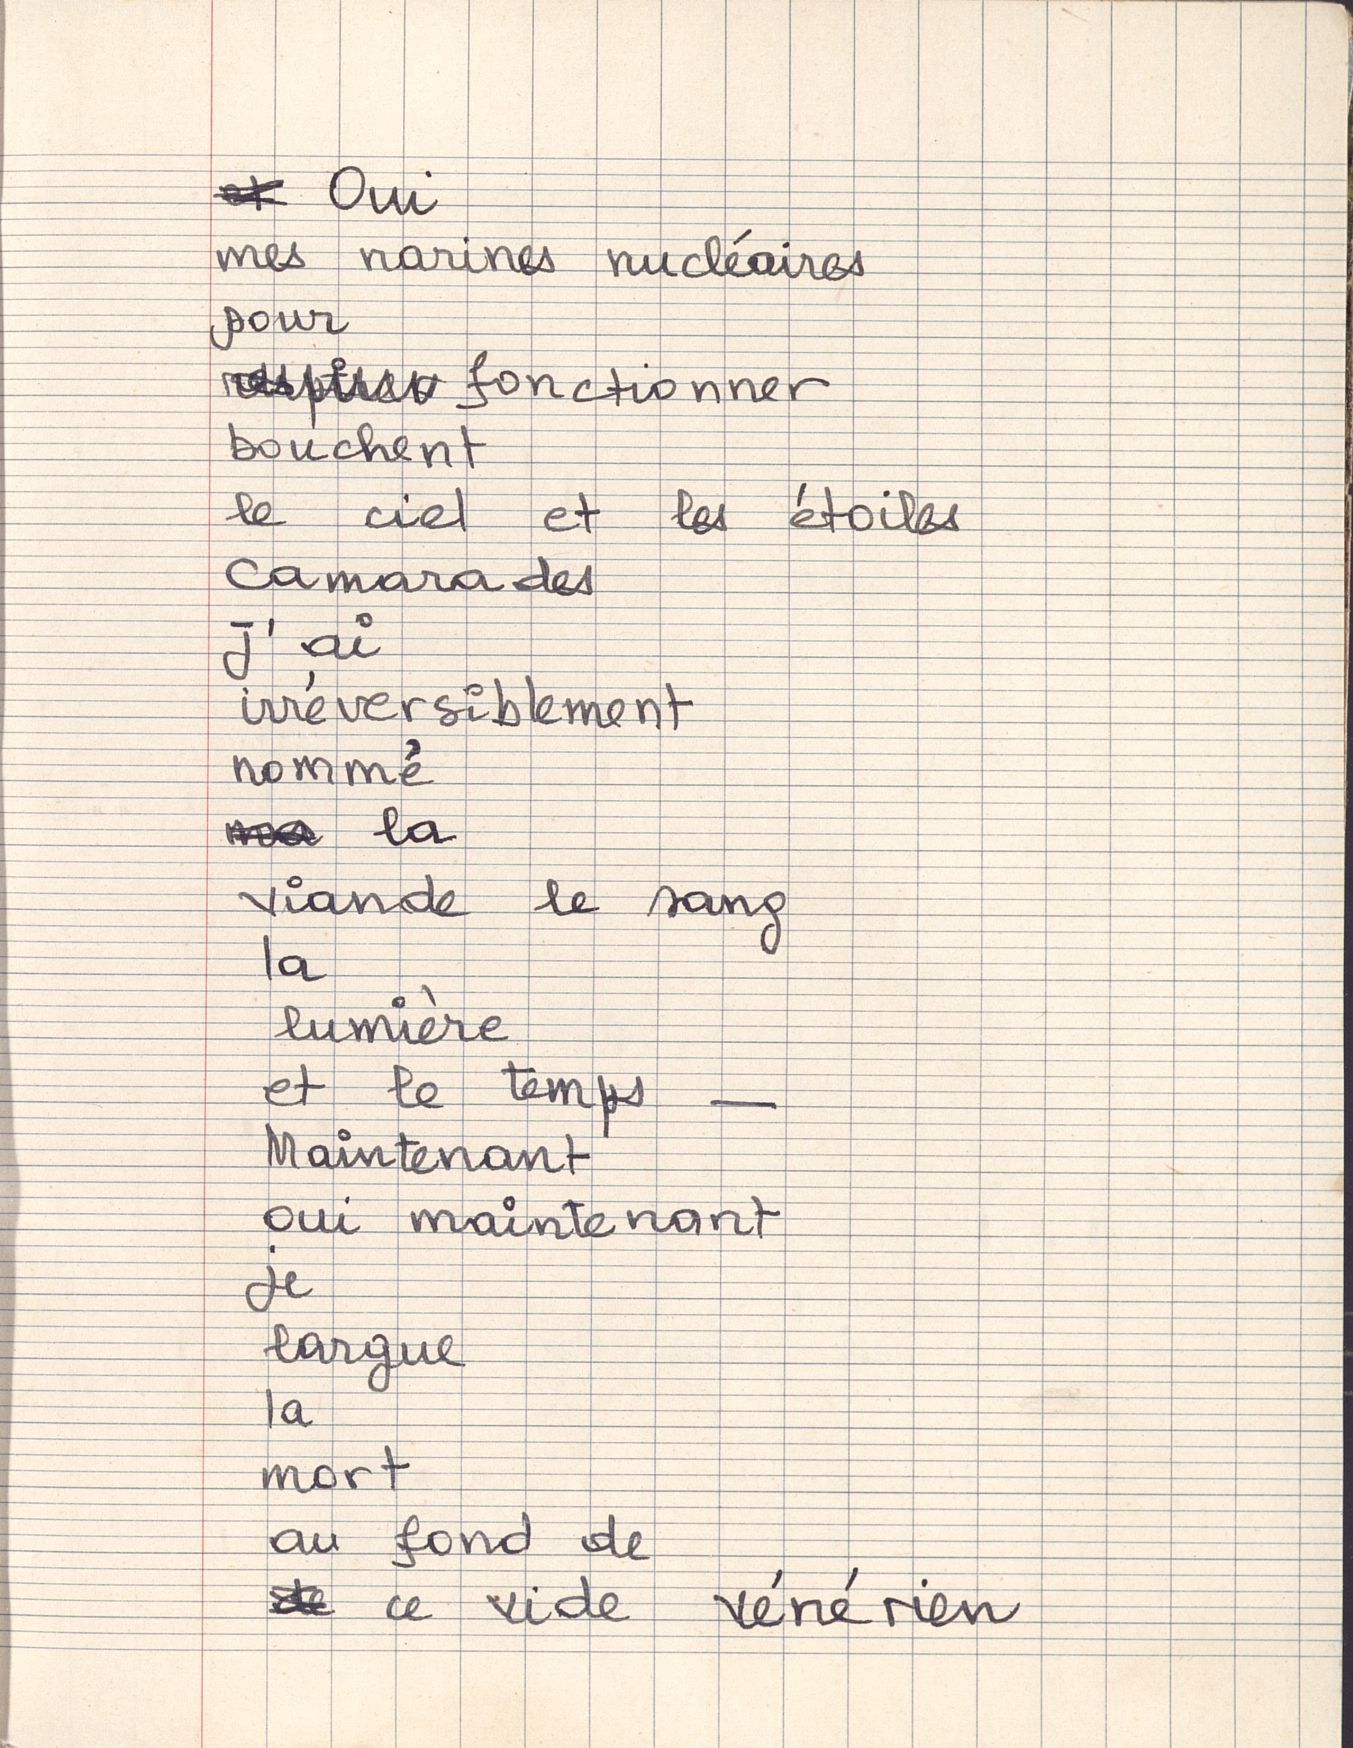 Oui
mes narines nucléaires
pour
fonctionner
bouchent
le ciel et les étoiles
Camarades
J'ai
irréversiblement
nommé
la
viande le sang
la
lumière
et le temps —
Maintenant
oui maintenant
je
largue
la
mort
au fond de
ce vide vénérien